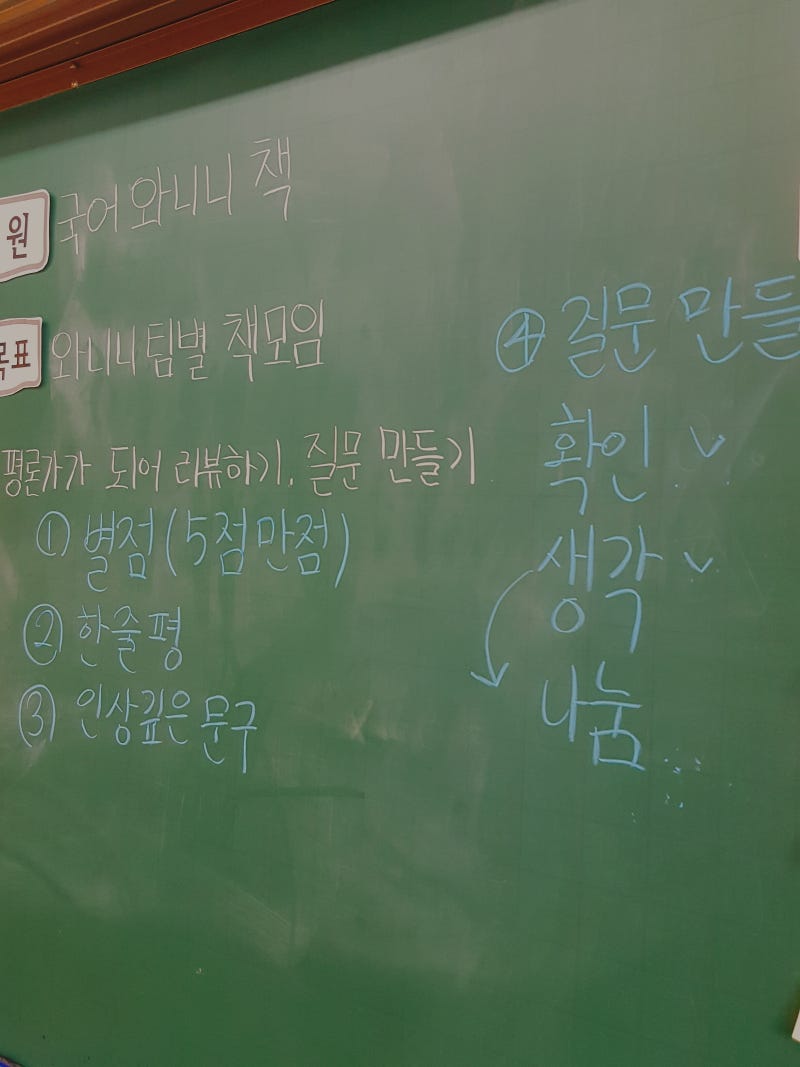 원 국어 와니니 책
목표 와니니 팀별 책모임
평론가가 되어 리뷰하기. 질문 만들기
① 별점(5점만점)
② 한줄평
③ 인상깊은 문구
④ 질문 만들
확인 ✓
생각 ✓
나눔